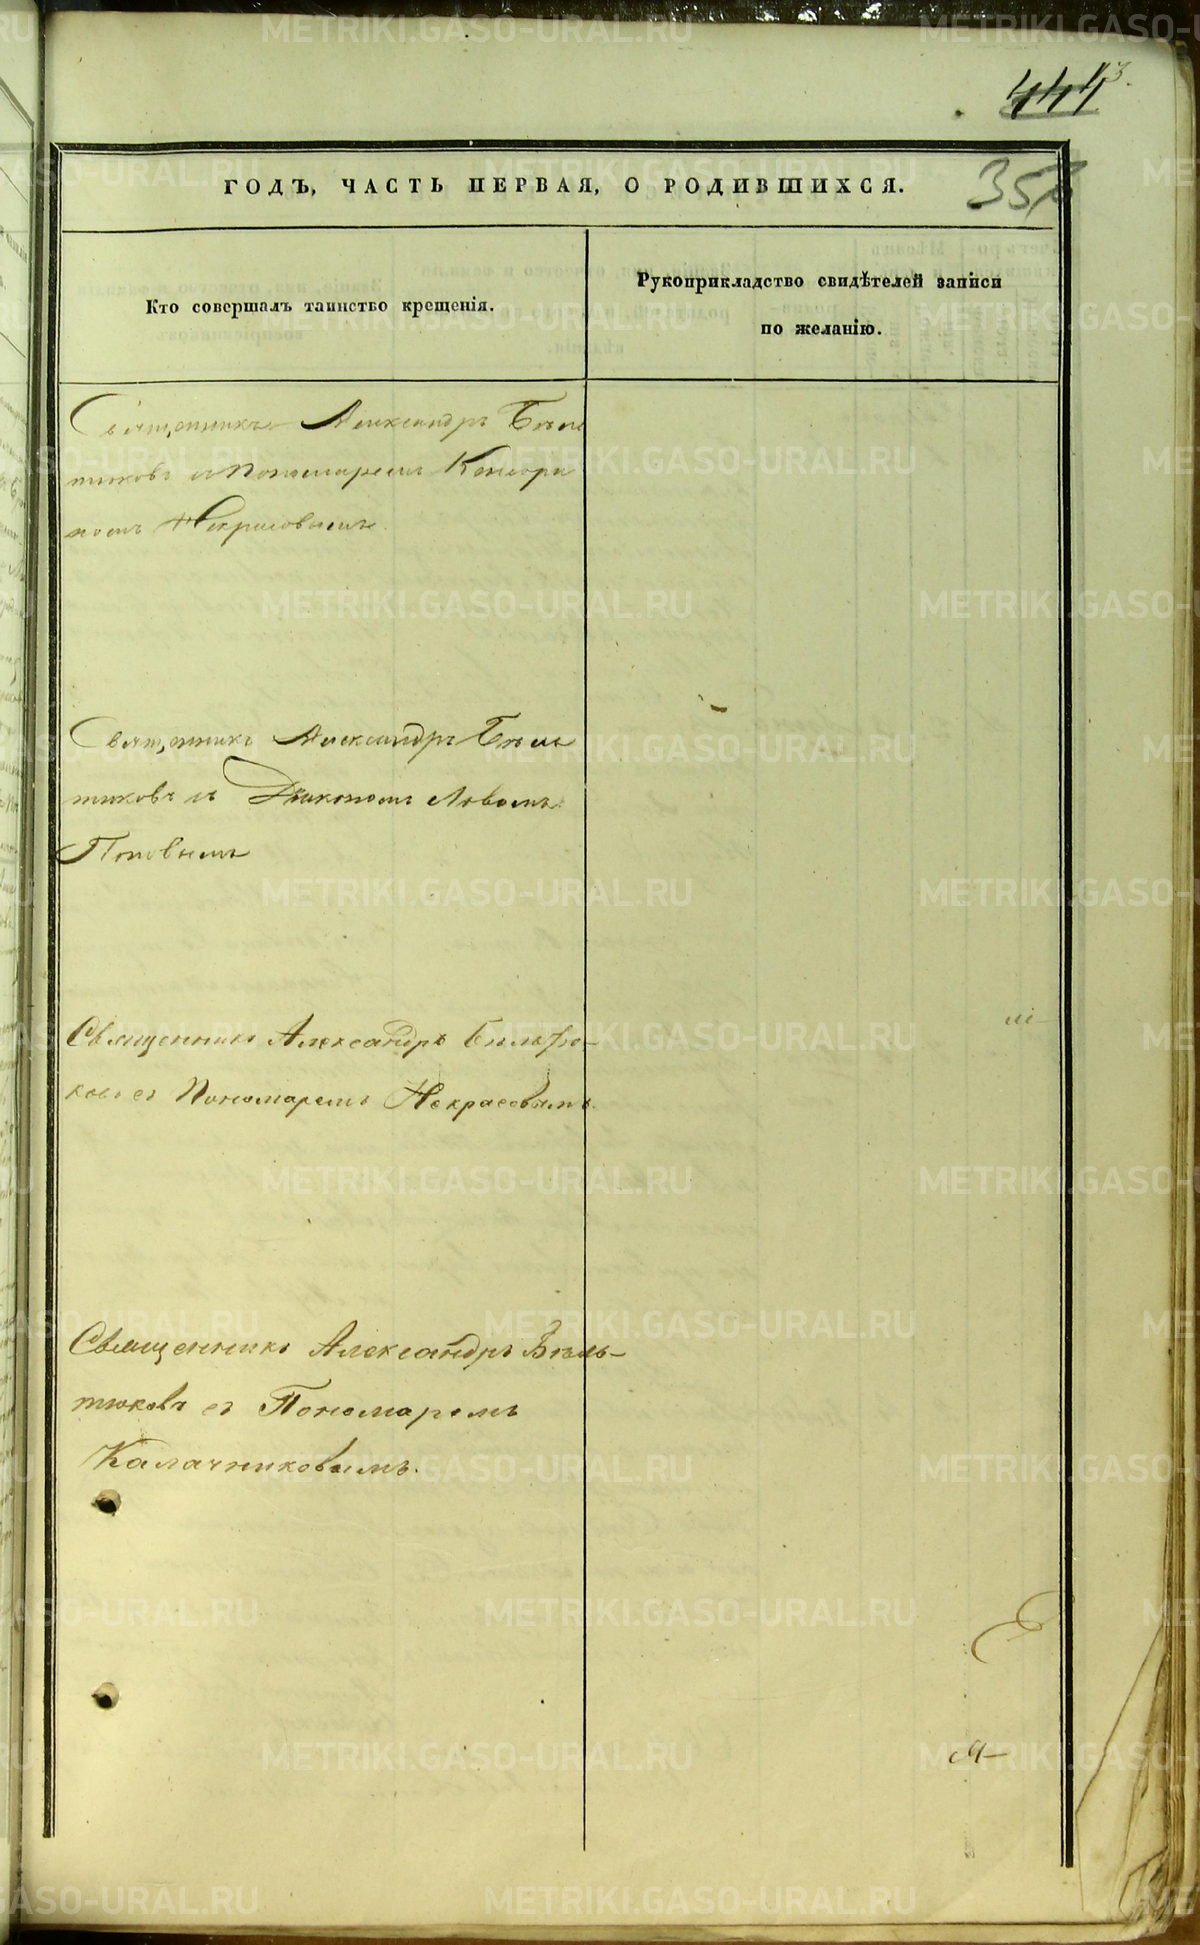 444
353
ГОДЪ, ЧАСТЬ ПЕРВАЯ, О РОДИВШИХСЯ.
Кто совершалъ таинство крещенія.
Рукоприкладство свидѣтелей записи
по желанію.
Священникъ Александръ Бѣль
тиковъ съ Пономаремъ
Некрасовымъ.
Священникъ Александръ Бѣль
тиковъ съ Діакономъ Львомъ
Поповымъ
Священникъ Александръ Бѣльтю-
ковъ съ Пономаремъ Некрасовымъ.
Священникъ Александръ Бѣль-
тюковъ съ Пономаремъ
Калачниковымъ.
METRIKI.GASO-URAL.RU